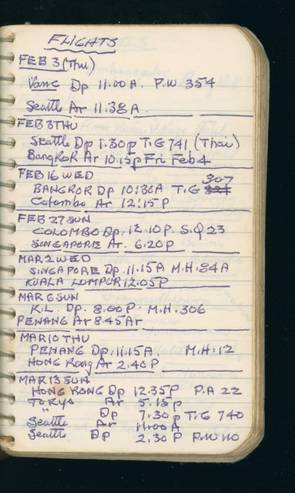 FLIGHTS
FEB 3 (Thu)
Vanc Dp 11.00A. P.W 354
Seattle Ar 11.38 A
FEB 3 THU
Seattle Dp 1.30p T.G 741 (Thai)
Bangkok Ar 10.15p Fri Feb 4
FEB 16 WED 307
BANGKOK Dp 10:30A T.G
Colombo Ar 12:15P
FEB 27 SUN
COLOMBO Dp. 12.10P. S.Q 23
SINGAPORE Ar. 6.20p
MAR 2 WED
SINGAPORE Dp. 11.15A M.H. 84A
KUALA LUMPUR 12.05P
MAR 6 SUN
K.L. Dp. 8.00P. M.H. 306
PENANG Ar 8.45 Ar
MAR 10 THU
PENANG Dp. 11.15A. M.H. 12
HONG KONG Ar 2.40P
MAR 13 SUN
HONG KONG Dp 12.35P P.A 22
TOKYO Ar 5.15p
" Dp 7.30p T.G 740
Seattle Ar 11.00 A
Seattle Dp 2.30 P P.W 110